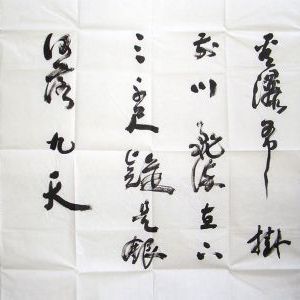 看瀑布掛
前川飛流直下
三千尺疑是銀
河落九天